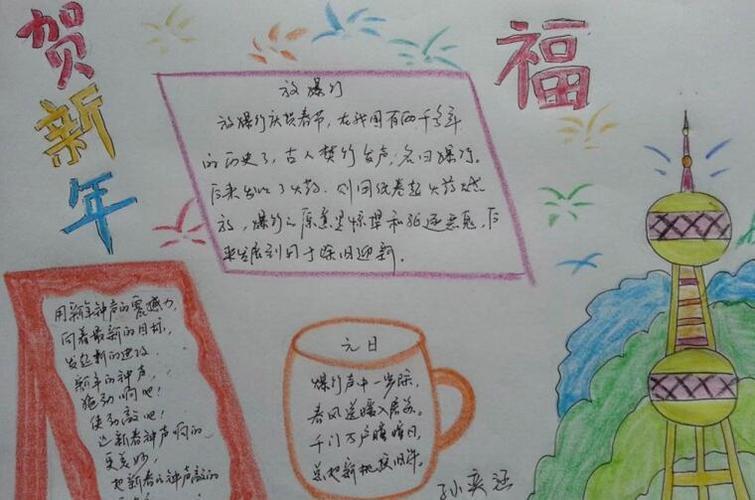 贺新年
福
放爆竹
放爆竹庆贺春节,在我国有两千多年
的历史了,古人焚竹发声,名曰爆竹。
后来出了火药,则用纸卷起火药燃
放,爆竹之原意是惊惮和驱逐恶鬼,后
来发展到用于除旧迎新.
用新年钟声的震撼力,
向着最新的目标,
发起新的进攻.
新年的钟声,
拖动啊吧!
使劲敲吧!
让新春钟声响的
更美妙,
把新春的钟声敲的
元日
爆竹声中一岁除,
春风送暖入屠苏。
千门万户曈曈日,
总把新桃换旧符。
孙奕涵